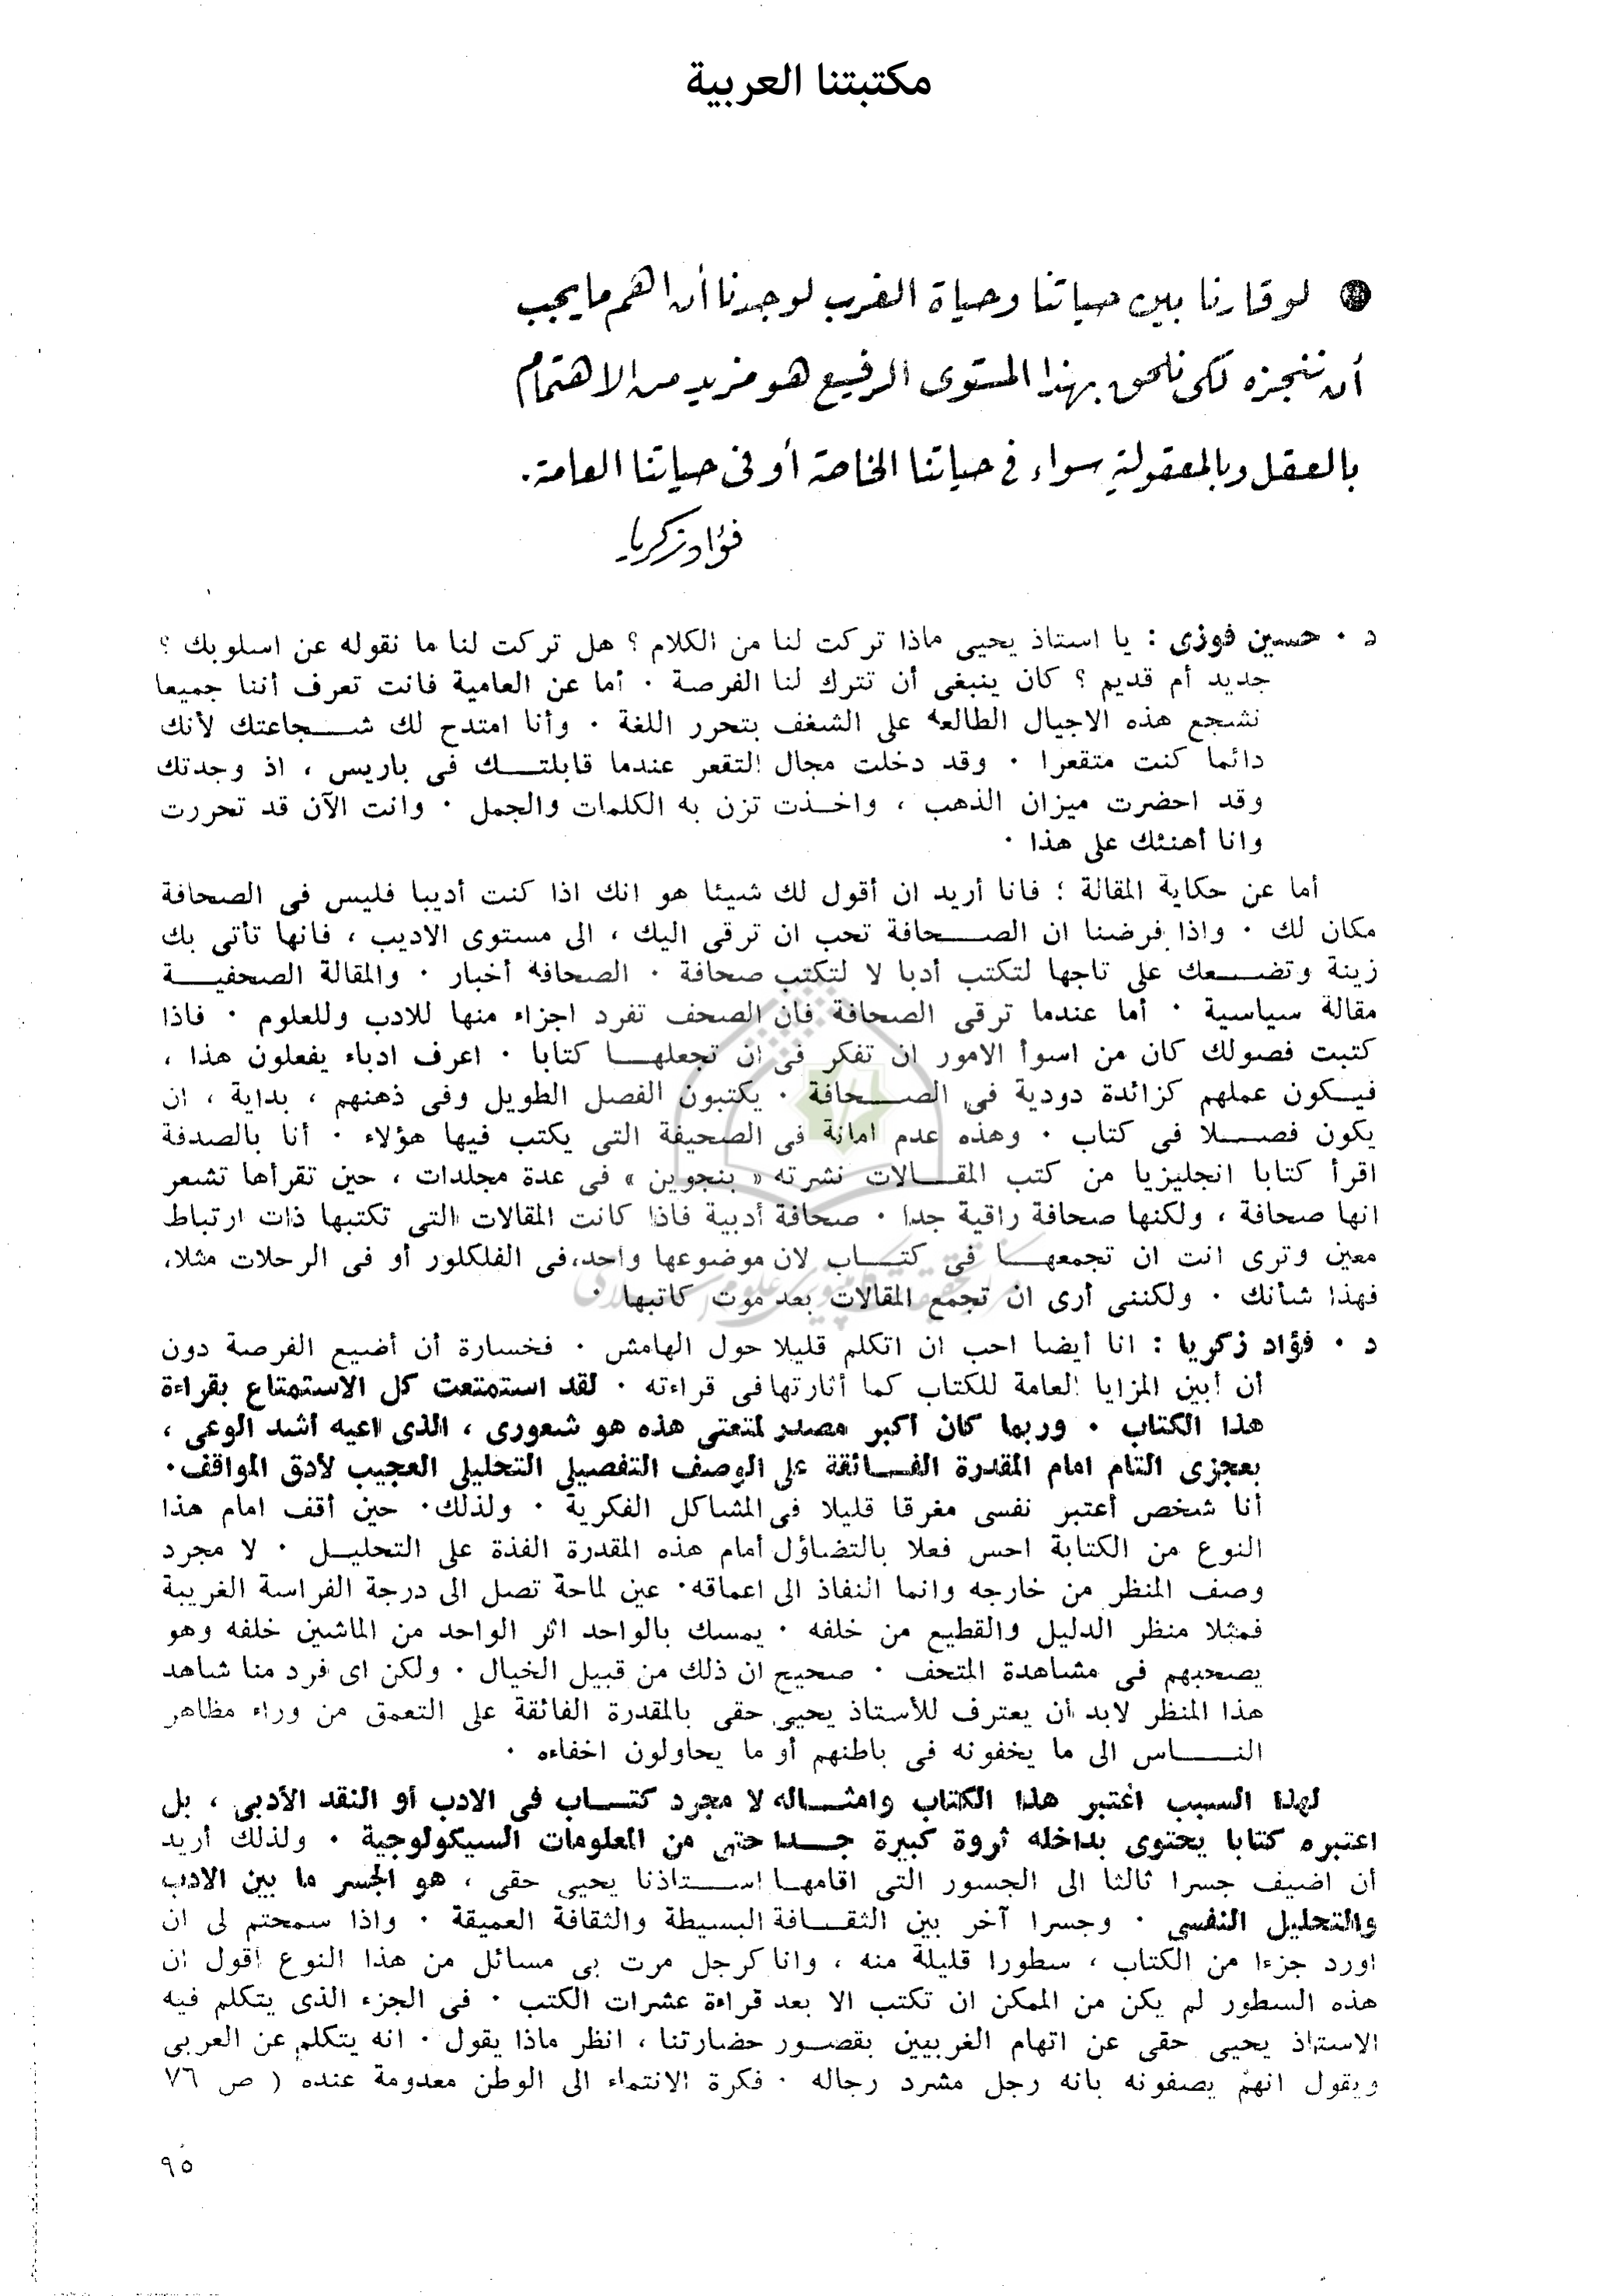 مكتبتنا العربية
● لو قارنا بين حياتنا وحياة الغرب لوجدنا أن اهم ما يجب
أن ننجزه لكى نلحق بهذا المستوى الرفيع هو مزيد من الاهتمام
بالعقل وبالمعقولية سواء فى حياتنا الخاصة أو فى حياتنا العامة.
فؤاد زكريا
د ٠ حسين فوزى : يا استاذ يحيى ماذا تركت لنا من الكلام ؟ هل تركت لنا ما نقوله عن اسلوبك ؟
جديد أم قديم ؟ كان ينبغى أن تترك لنا الفرصة ٠ أما عن العامية فانت تعرف أننا جميعا
نشجع هذه الاجيال الطالعة على الشغف بتحرر اللغة ٠ وأنا امتدح لك شجاعتك لأنك
دائما كنت متقعرا ٠ وقد دخلت مجال التقعر عندما قابلتك فى باريس ، اذ وجدتك
وقد احضرت ميزان الذهب ، واخذت تزن به الكلمات والجمل ٠ وانت الآن قد تحررت
وانا أهنئك على هذا ٠
أما عن حكاية المقالة ؛ فانا أريد ان أقول لك شيئا هو انك اذا كنت أديبا فليس فى الصحافة
مكان لك ٠ واذا فرضنا ان الصحافة تحب ان ترقى اليك ، الى مستوى الاديب ، فانها تأتى بك
زينة وتضعك على تاجها لتكتب أدبا لا لتكتب صحافة ٠ الصحافة أخبار ٠ والمقالة الصحفية
مقالة سياسية ٠ أما عندما ترقى الصحافة فان الصحف تفرد اجزاء منها للادب وللعلوم ٠ فاذا
كتبت فصولك كان من اسوأ الامور ان تفكر فى ان تجعلها كتابا ٠ اعرف ادباء يفعلون هذا ،
فيكون عملهم كزائدة دودية فى الصحافة ٠ يكتبون الفصل الطويل وفى ذهنهم ، بداية ، ان
يكون فصلا فى كتاب ٠ وهذه عدم امانة فى الصحيفة التى يكتب فيها هؤلاء ٠ أنا بالصدفة
اقرأ كتابا انجليزيا من كتب المقالات نشرته « بنجوين » فى عدة مجلدات ، حين تقرأها تشعر
انها صحافة ، ولكنها صحافة راقية جدا ٠ صحافة أدبية فاذا كانت المقالات التى تكتبها ذات ارتباط
معين وترى انت ان تجمعها فى كتاب لان موضوعها واحد، فى الفلكلور أو فى الرحلات مثلا،
فهذا شأنك ٠ ولكننى أرى ان تجمع المقالات بعد موت كاتبها ٠
د ٠ فؤاد زكريا : انا أيضا احب ان اتكلم قليلا حول الهامش ٠ فخسارة أن أضيع الفرصة دون
أن أبين المزايا العامة للكتاب كما أثارتها فى قراءته ٠ لقد استمتعت كل الاستمتاع بقراءة
هذا الكتاب ٠ وربما كان أكبر مصدر لمتعتى هذه هو شعورى ، الذى اعيه أشد الوعى ،
بعجزى التام امام المقدرة الفائقة على الوصف التفصيلى التحليلى العجيب لأدق المواقف٠
أنا شخص أعتبر نفسى مغرقا قليلا فى المشاكل الفكرية ٠ ولذلك٠ حين أقف امام هذا
النوع من الكتابة احس فعلا بالتضاؤل أمام هذه المقدرة الفذة على التحليل ٠ لا مجرد
وصف المنظر من خارجه وانما النفاذ الى اعماقه٠ عين لماحة تصل الى درجة الفراسة الغريبة
فمثلا منظر الدليل والقطيع من خلفه ٠ يمسك بالواحد اثر الواحد من الماشين خلفه وهو
يصحبهم فى مشاهدة المتحف ٠ صحيح ان ذلك من قبيل الخيال ٠ ولكن اى فرد منا شاهد
هذا المنظر لابد أن يعترف للأستاذ يحيى حقى بالمقدرة الفائقة على التعمق من وراء مظاهر
الناس الى ما يخفونه فى باطنهم أو ما يحاولون اخفاءه ٠
لهذا السبب اعتبر هذا الكتاب وامثاله لا مجرد كتاب فى الادب أو النقد الأدبى ، بل
اعتبره كتابا يحتوى بداخله ثروة كبيرة جدا حتى من المعلومات السيكولوجية ٠ ولذلك أريد
أن اضيف جسرا ثالثا الى الجسور التى اقامها استاذنا يحيى حقى ، هو الجسر ما بين الادب
والتحليل النفسى ٠ وجسرا آخر بين الثقافة البسيطة والثقافة العميقة ٠ واذا سمحتم لى ان
اورد جزءا من الكتاب ، سطورا قليلة منه ، وانا كرجل مرت بى مسائل من هذا النوع اقول ان
هذه السطور لم يكن من الممكن ان تكتب الا بعد قراءة عشرات الكتب ٠ فى الجزء الذى يتكلم فيه
الاستاذ يحيى حقى عن اتهام الغربيين بقصور حضارتنا ، انظر ماذا يقول ٠ انه يتكلم عن العربى
ويقول انهم يصفونه بانه رجل مشرد رحاله ٠ فكرة الانتماء الى الوطن معدومة عنده ( ص ٧٦
٩٥